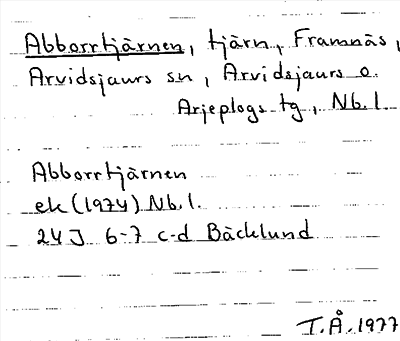 Abborrtjärnen, tjärn, Framnäs,
Arvidsjaurs sn, Arvidsjaurs o.
Arjeplogs tg, Nb.l.
Abborrtjärnen
ek (1974) Nb.l.
24J 6-7 c-d Bäcklund
T.Å. 1977